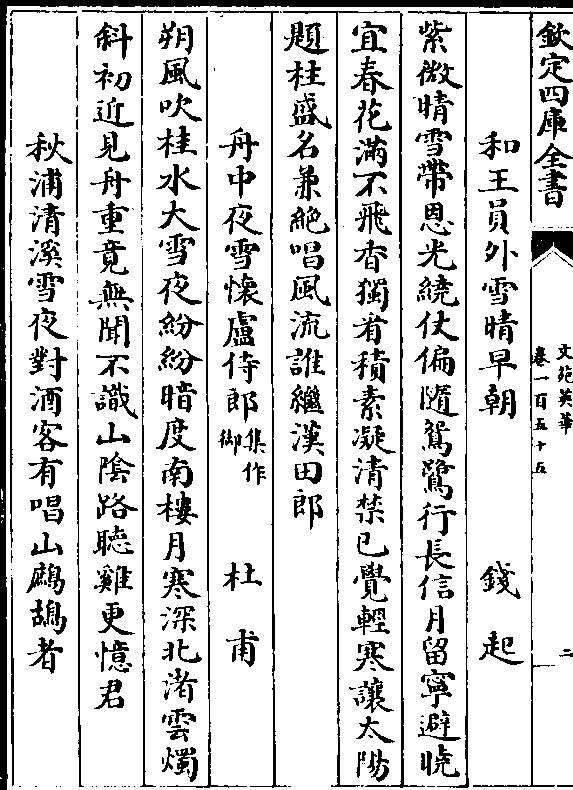 欽定四庫全書
文苑英華
卷一百五十五
二
和王員外雪晴早朝 錢起
紫微晴雪帶恩光繞仗偏隨鴛鷺行長信月留寧避曉
宜春花滿不飛香獨看積素凝清禁已覺輕寒讓太陽
題柱盛名兼絶唱風流誰繼漢田郎
舟中夜雪懷盧侍郎集作御 杜甫
朔風吹桂水大雪夜紛紛暗度南樓月寒深北渚雲燭
斜初近見舟重竟無聞不識山陰路聽雞更憶君
秋浦清溪雪夜對酒客有唱山鷓鴣者